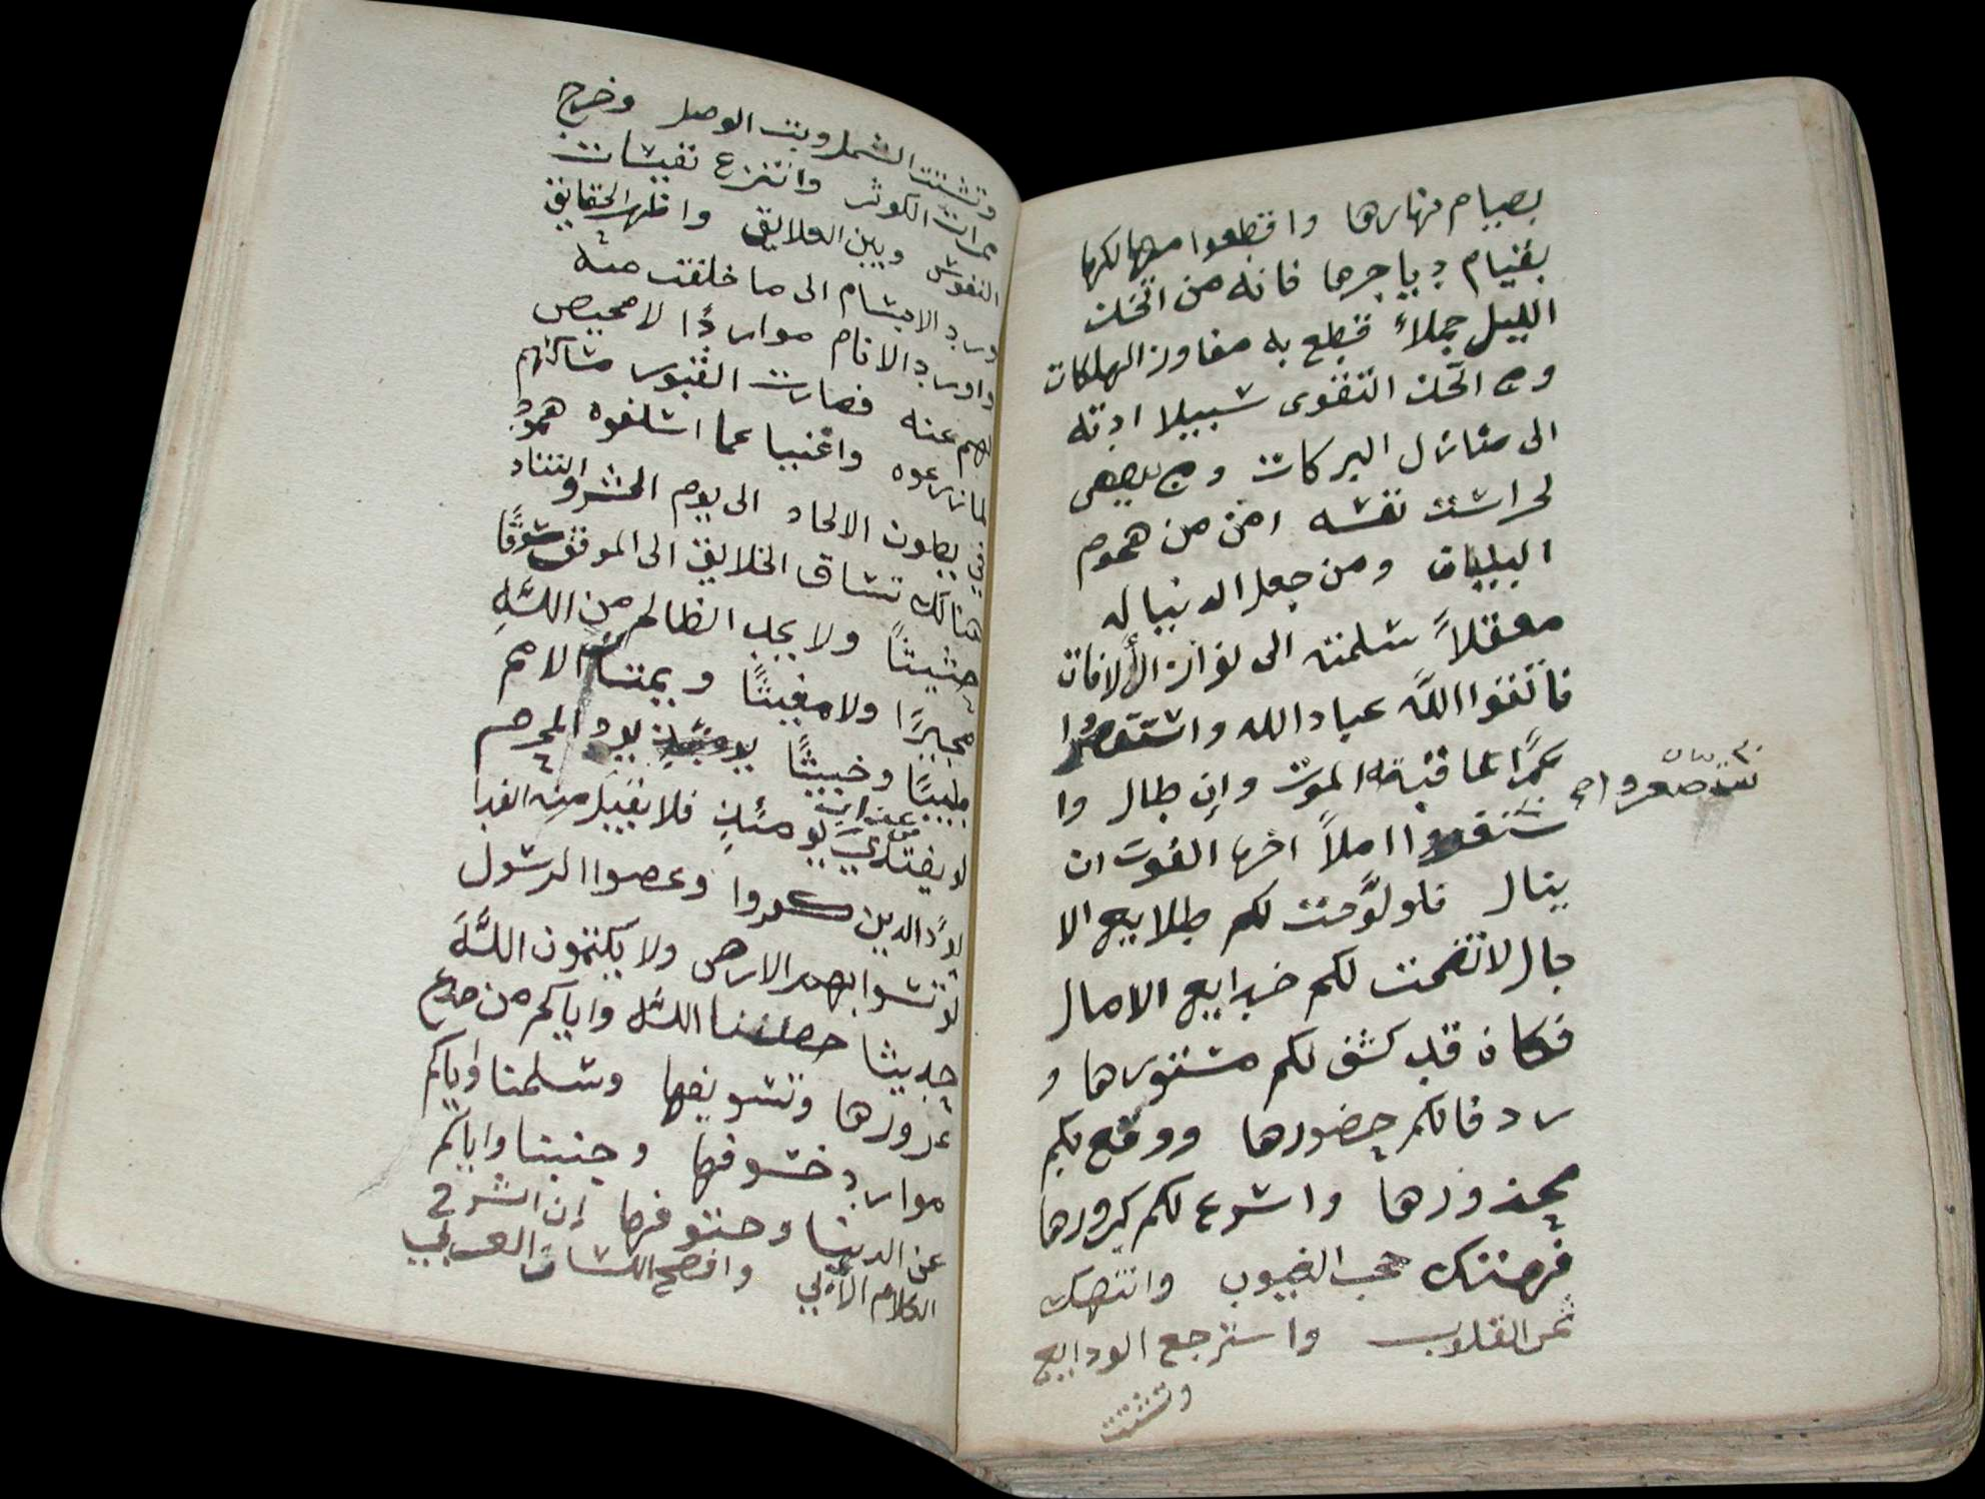 بصيام نهارها واقطعوا مهالكها
بقيام دياجرها فانه من اتخذ
الليل جملاً قطع به مفاوز الهلكات
ومن اتخذ التقوى سبيلا ادته
الى منازل البركات ومن
لحراست نفسه امن من هموم
البليات ومن جعل الدنيا له
معقلاً سلمته الى الافات
فاتقوا الله عباد الله واستقصروا
عمرًا عاقبته الموت وإن طال وا
ستصغروا
املاً اخرها الفوت ان
ينال فلو لوَّحت لكم طلايع الا
جال لاتضحت لكم خدايع الامال
فكان قد كشف لكم مستورها و
ردفا لكم حضورها ووقع بكم
محذورها واشرع لكم كرورها
فهتك حجب الغيوب وانتهك
ثمر القلوب واسترجع الودايع
وتشتت
وتشتت الشمل وبت الوصل وخرج
الكوثر وانتزع نفيسات
النفوس وبين العلايق واظهر الحقايق
ورد الاجسام الى ما خلقت منه
واورد الانام مواردًا لا محيص
لهم عنه فصارت القبور مساكنهم
لما زرعوه واغنيا عما اسلفوه همودٌ
في بطون الالحاد الى يوم الحشر والتناد
هنالك تساق الخلايق الى الموقف سوقًا
حثيثاً ولا يجد الظالم من اللهِ
مجيرًا ولا مغيثًا ويمتاز الامم
طيبًا وخبيثًا يود المجرم
لو يفتدي من عذاب يومئذٍ فلا يقبل منه الفدا
يودّ الذين كفروا وعصوا الرسول
لو تسوا بهم الارض ولا يكتمون اللَّهَ
حديثا جعلنا الله واياكم من خدع
غرورها وتسويفها وسلمنا واياكم
موارد خسوفها وجنبنا واياكم
عن الدنيا وحتوفها إن اشرف
الكلام الأدبي وافصح اللسان العربي